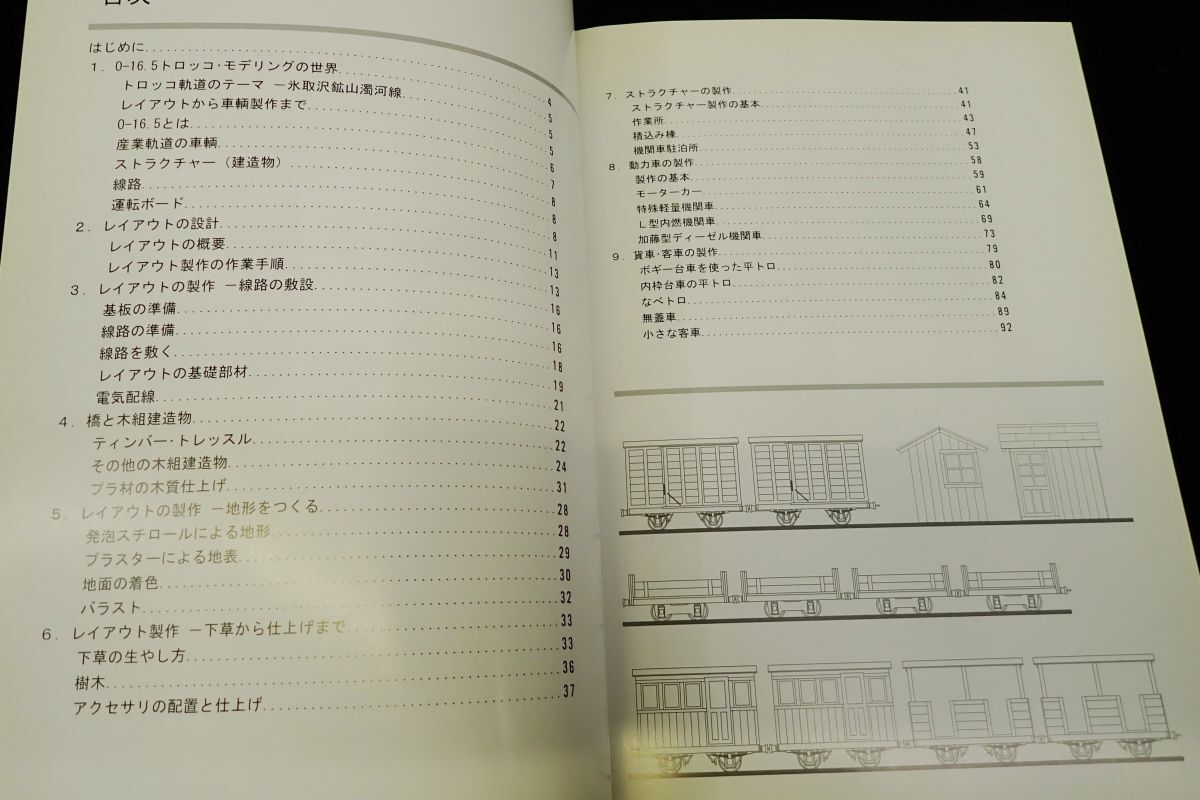 目次
はじめに....................4
1. 0-16.5トロッコ・モデリングの世界....................5
トロッコ軌道のテーマ －氷取沢鉱山濁河線....................5
レイアウトから車輌製作まで....................5
0-16.5とは....................6
産業軌道の車輌....................7
ストラクチャー（建造物）....................8
線路....................8
運転ボード....................8
2. レイアウトの設計....................11
レイアウトの概要....................13
レイアウト製作の作業手順....................13
3. レイアウトの製作 －線路の敷設....................16
基板の準備....................16
線路の準備....................16
線路を敷く....................18
レイアウトの基礎部材....................19
電気配線....................21
4. 橋と木組建造物....................22
ティンバー・トレッスル....................22
その他の木組建造物....................24
プラ材の木質仕上げ....................31
5. レイアウトの製作 －地形をつくる....................28
発泡スチロールによる地形....................28
プラスターによる地表....................29
地面の着色....................30
バラスト....................32
6. レイアウト製作 －下草から仕上げまで....................33
下草の生やし方....................33
樹木....................36
アクセサリの配置と仕上げ....................37
7. ストラクチャーの製作....................41
ストラクチャー製作の基本....................41
作業所....................43
積込み棟....................47
機関車駐泊所....................53
8. 動力車の製作....................58
製作の基本....................59
モーターカー....................61
特殊軽量機関車....................64
Ｌ型内燃機関車....................69
加藤型ディーゼル機関車....................73
9. 貨車・客車の製作....................79
ボギー台車を使った平トロ....................80
内枠台車の平トロ....................82
なべトロ....................84
無蓋車....................89
小さな客車....................92